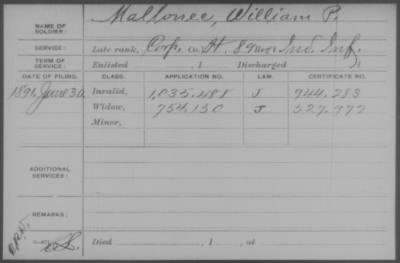 Mallonee, William P.
NAME OF SOLDIER:
SERVICE: Late rank, Corp. Co. H, 89 Ind. Inf.
TERM OF SERVICE: Enlisted , 1 Discharged , 1
DATE OF FILING. CLASS. APPLICATION NO. LAW. CERTIFICATE NO.
1891, June 30. Invalid, 1,035.488 J 944.283
Widow, 754.150 J 527.972
Minor,
ADDITIONAL SERVICES:
REMARKS:
Died , 1 , at